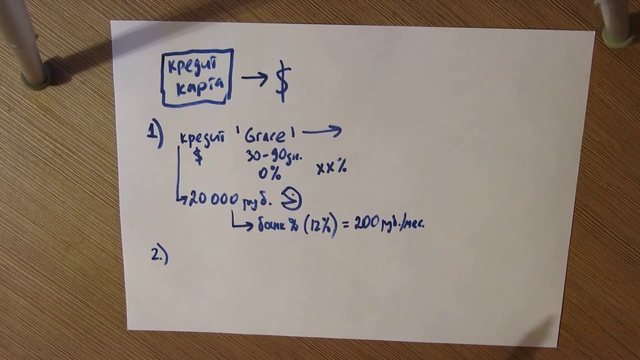 кредит
карта → $
1) кредит 'Grace' →
$ 30-90 дн. xx%
0%
20 000 руб.
банк % (12%) = 200 руб./мес.
2.)